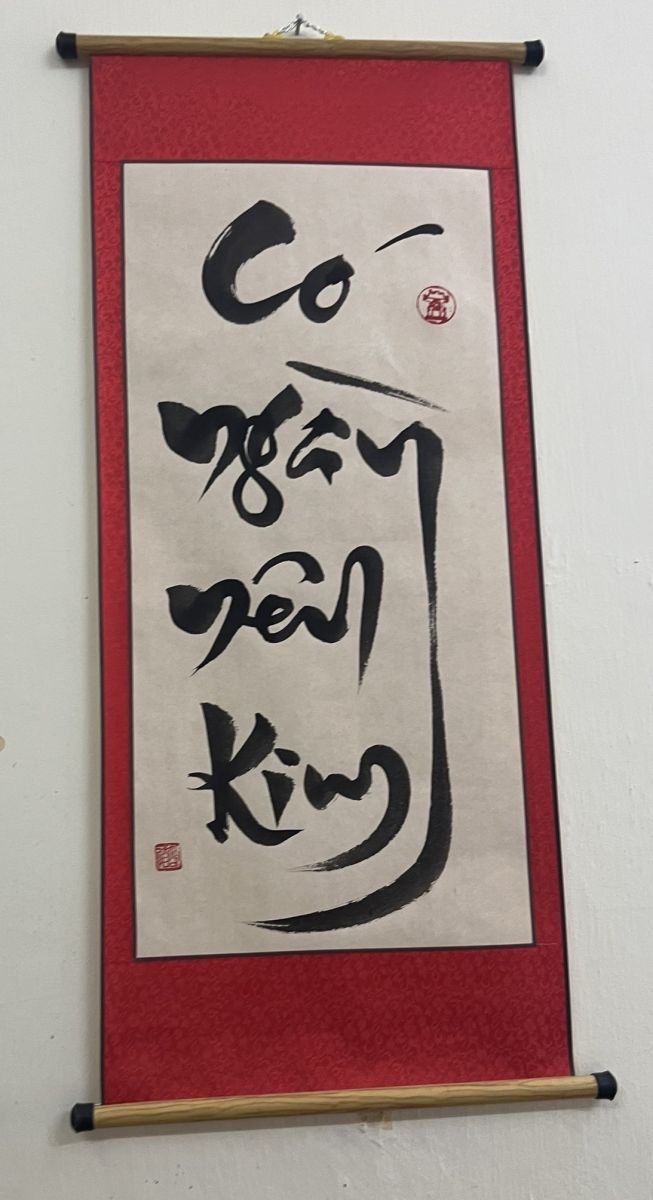 Có
ngày
nên
Kim